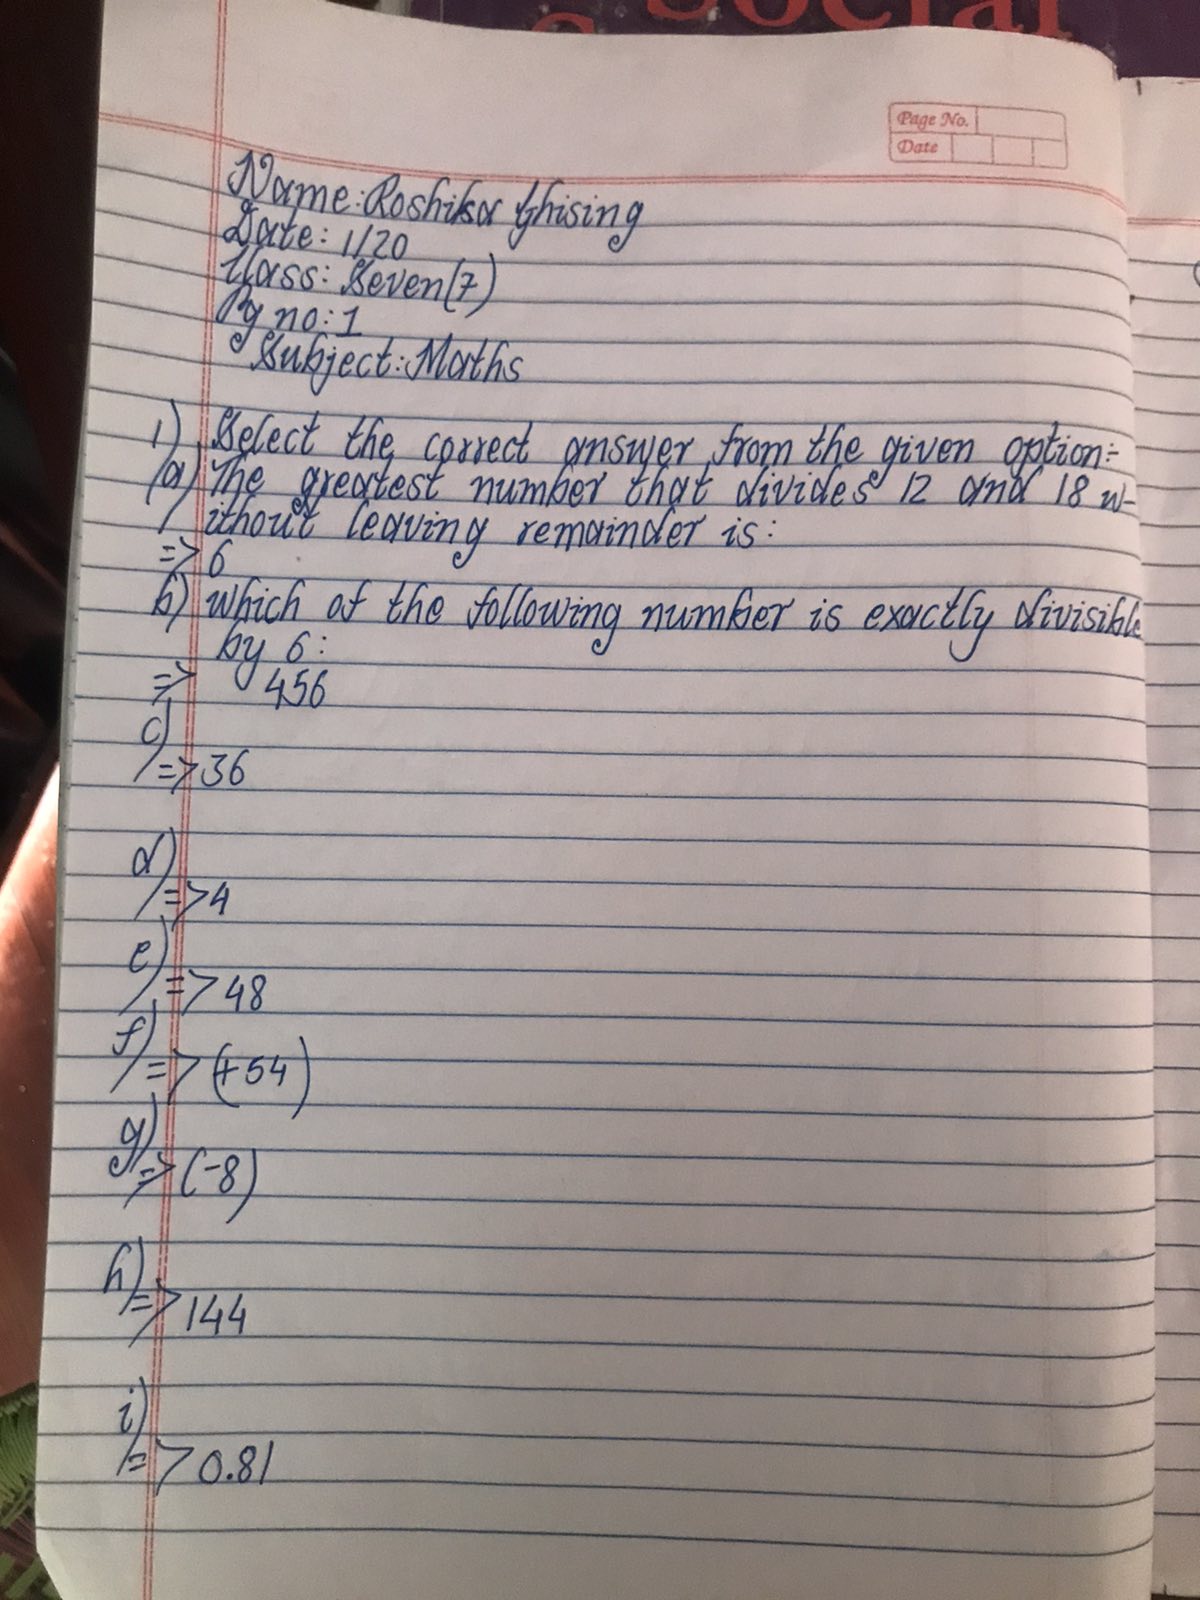 Social
Page No.
Date
Name: Roshika Ghising
Date: 1/20
Class: Seven(7)
Pg no: 1
Subject: Maths
1) Select the correct answer from the given option:-
(a) The greatest number that divides 12 and 18 w-
ithout leaving remainder is:
=> 6
b) which of the following number is exactly divisible
by 6:
=> 456
c)
=> 36
d)
=> 4
e)
=> 48
f)
=> (+54)
g)
=> (-8)
h)
=> 144
i)
=> 0.81